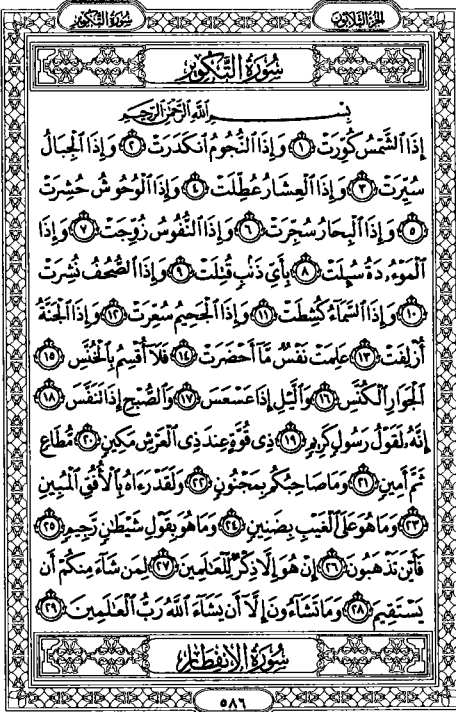 سُورَةُ التَّكْوِيرِ الجُزْءُ الثَّلَاثُونَ
سُورَةُ التَّكْوِيرِ
بِسْمِ اللَّهِ الرَّحْمَٰنِ الرَّحِيمِ
إِذَا ٱلشَّمْسُ كُوِّرَتْ ١ وَإِذَا ٱلنُّجُومُ ٱنكَدَرَتْ ٢ وَإِذَا ٱلْجِبَالُ
سُيِّرَتْ ٣ وَإِذَا ٱلْعِشَارُ عُطِّلَتْ ٤ وَإِذَا ٱلْوُحُوشُ حُشِرَتْ
٥ وَإِذَا ٱلْبِحَارُ سُجِّرَتْ ٦ وَإِذَا ٱلنُّفُوسُ زُوِّجَتْ ٧ وَإِذَا
ٱلْمَوْءُۥدَةُ سُئِلَتْ ٨ بِأَيِّ ذَنۢبٍ قُتِلَتْ ٩ وَإِذَا ٱلصُّحُفُ نُشِرَتْ
١٠ وَإِذَا ٱلسَّمَآءُ كُشِطَتْ ١١ وَإِذَا ٱلْجَحِيمُ سُعِّرَتْ ١٢ وَإِذَا ٱلْجَنَّةُ
أُزْلِفَتْ ١٣ عَلِمَتْ نَفْسٌ مَّآ أَحْضَرَتْ ١٤ فَلَآ أُقْسِمُ بِٱلْخُنَّسِ ١٥
ٱلْجَوَارِ ٱلْكُنَّسِ ١٦ وَٱلَّيْلِ إِذَا عَسْعَسَ ١٧ وَٱلصُّبْحِ إِذَا تَنَفَّسَ ١٨
إِنَّهُۥ لَقَوْلُ رَسُولٍ كَرِيمٍ ١٩ ذِى قُوَّةٍ عِندَ ذِى ٱلْعَرْشِ مَكِينٍ ٢٠ مُّطَاعٍ
ثَمَّ أَمِينٍ ٢١ وَمَا صَاحِبُكُم بِمَجْنُونٍ ٢٢ وَلَقَدْ رَءَاهُ بِٱلْأُفُقِ ٱلْمُبِينِ
٢٣ وَمَا هُوَ عَلَى ٱلْغَيْبِ بِضَنِينٍ ٢٤ وَمَا هُوَ بِقَوْلِ شَيْطَٰنٍ رَّجِيمٍ ٢٥
فَأَيْنَ تَذْهَبُونَ ٢٦ إِنْ هُوَ إِلَّا ذِكْرٌ لِّلْعَٰلَمِينَ ٢٧ لِمَن شَآءَ مِنكُمْ أَن
يَسْتَقِيمَ ٢٨ وَمَا تَشَآءُونَ إِلَّآ أَن يَشَآءَ ٱللَّهُ رَبُّ ٱلْعَٰلَمِينَ ٢٩
سُورَةُ الِانفِطَارِ
٥٨٦